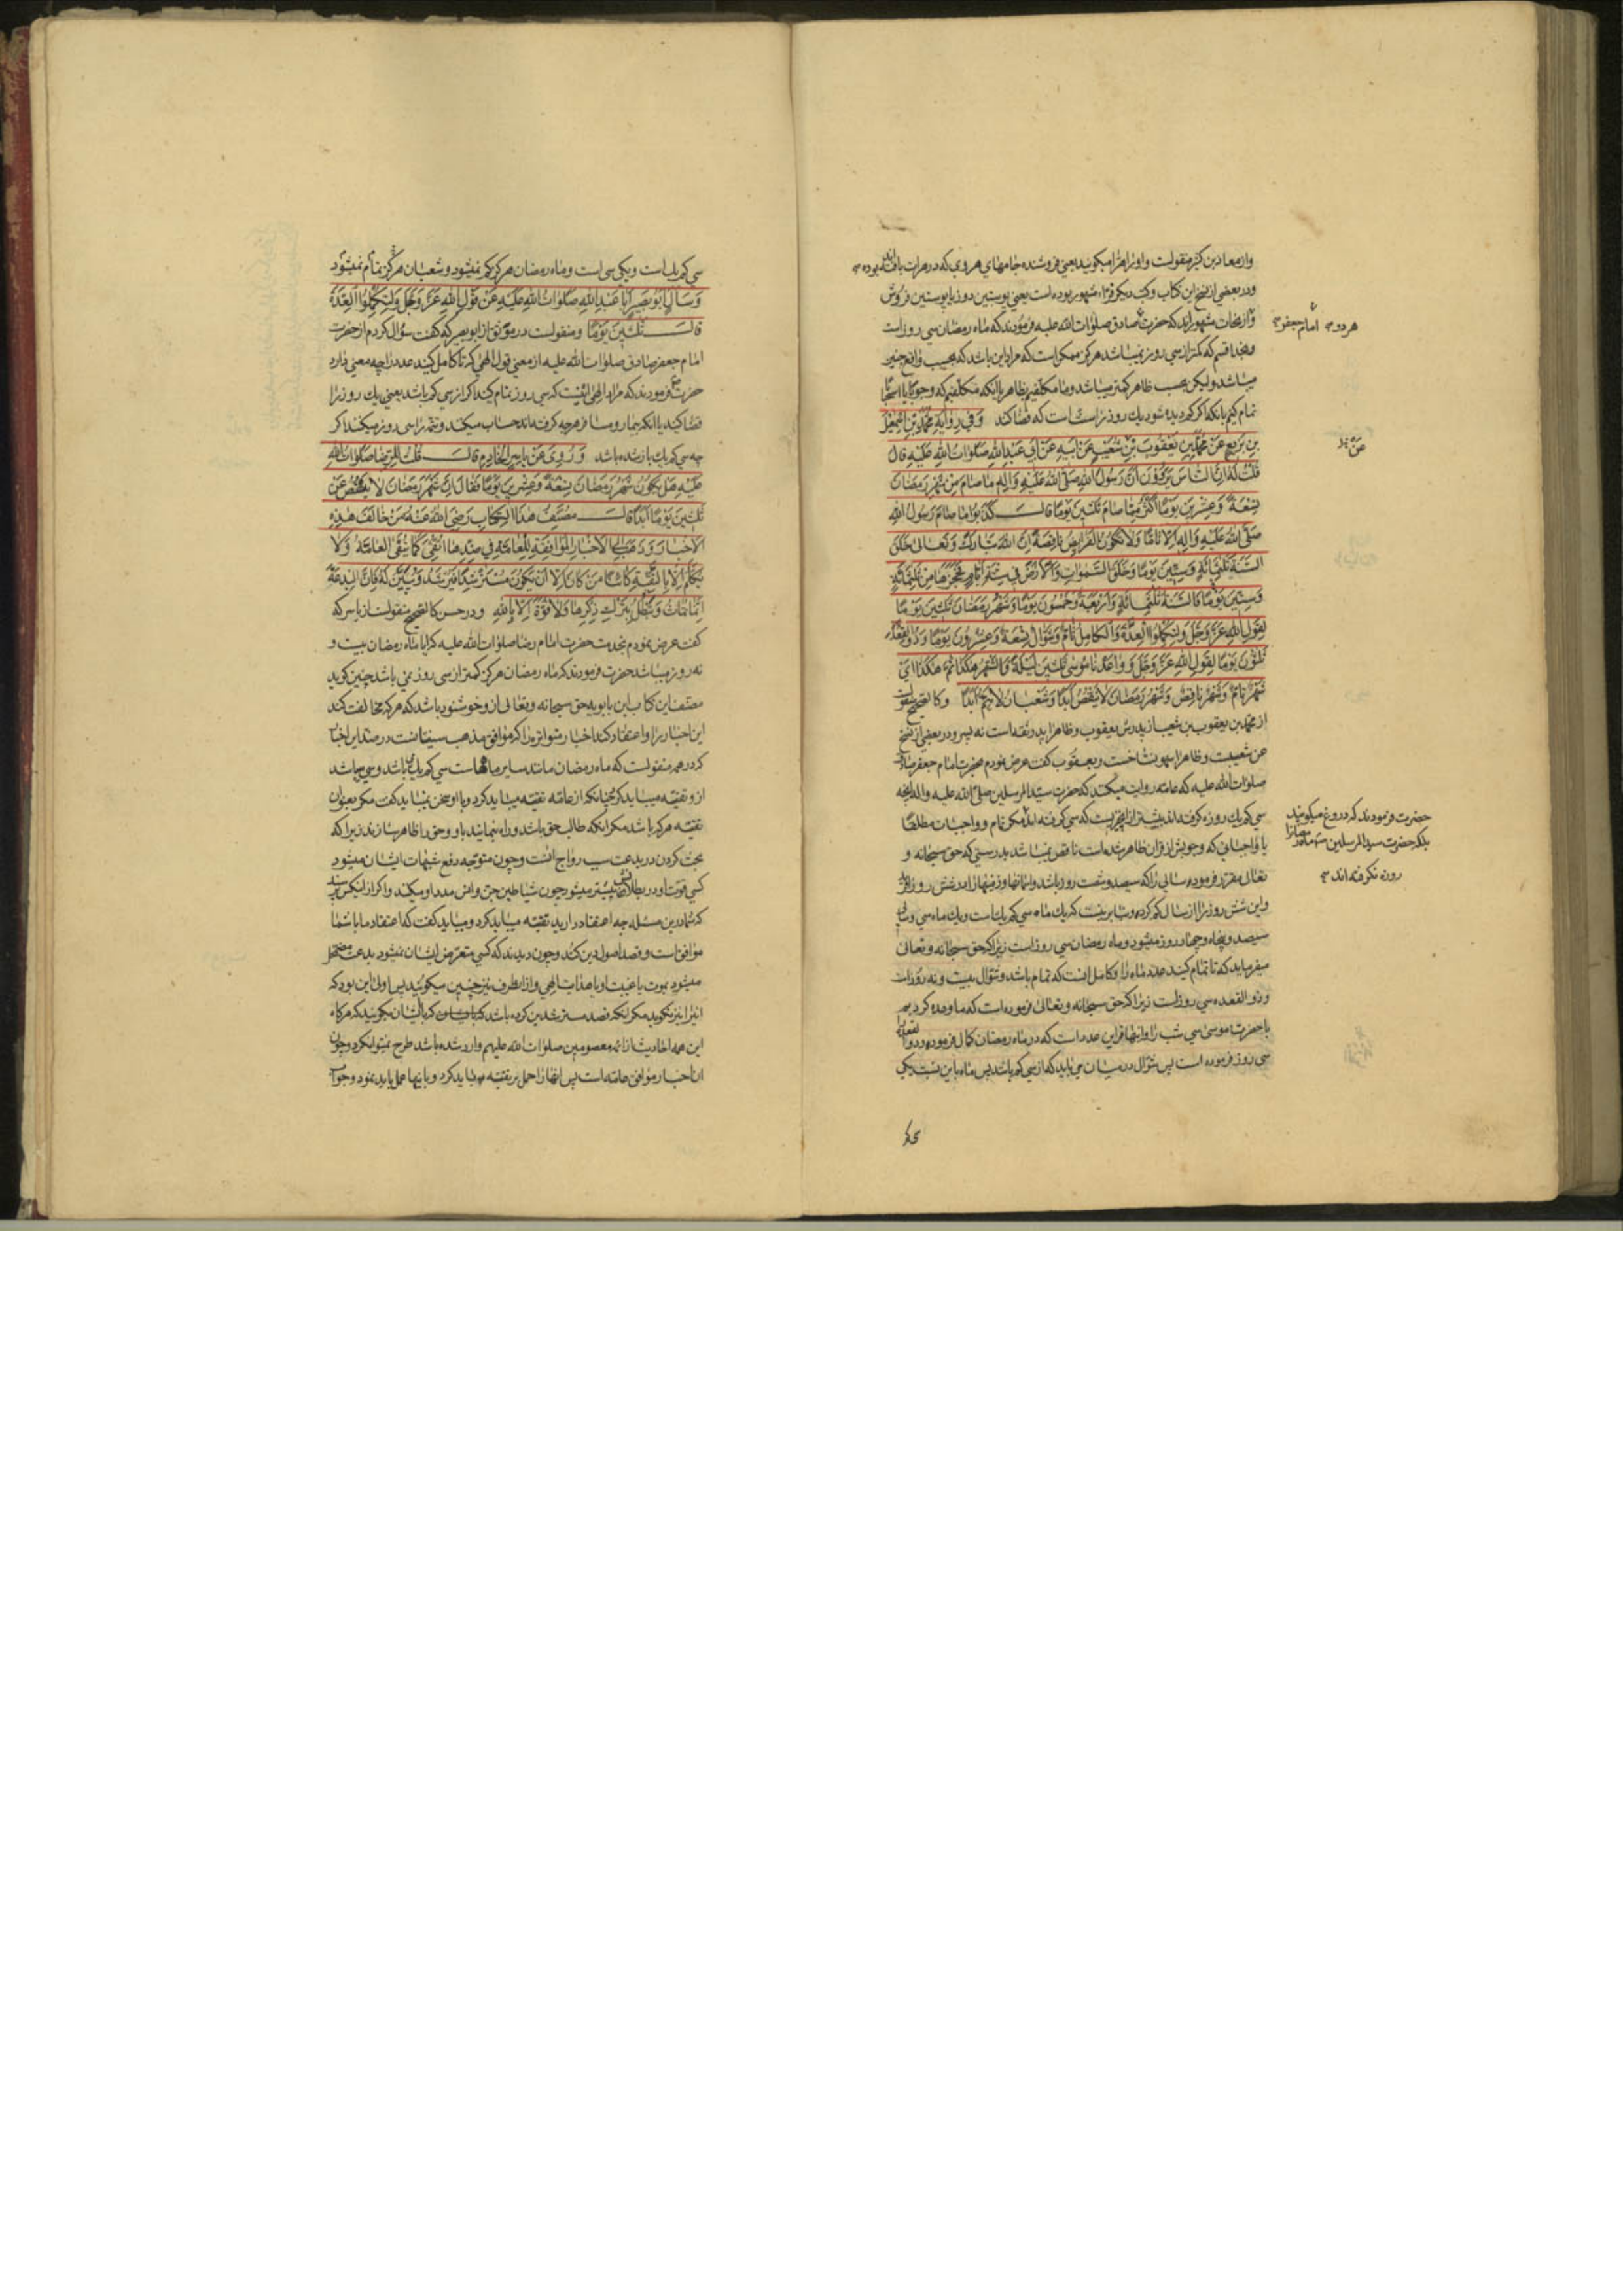 واز معاذ بن کثیر منقولست و او را هرا میگویند یعنی فروشنده جامهای هروی که در هرات بافته بوده
و در بعضی از نسخ این کتاب و کتب دیگر فرّاء مشهور بوده است یعنی پوستین دوز یا پوستین فروش
و از ثقات مشهوراند که حضرت صادق صلوات الله علیه فرمودند که ماه رمضان سی روز است
هر دو امام جعفر
و بخدا قسم که کمتر از سی روز نمیباشد هرگز ممکن است که مراد این باشد که بحسب واقع چنین
میباشد ولیکن بحسب ظاهر کمتر میباشد و ما مکلفیم بظاهر یا آنکه مکلفیم که وجوبا یا استحبابا
تمام کنیم بآنکه اگر کم دیده شود یک روز را سنت است که قضا کند وَفي رِوايَةِ مُحَمَّدِ بْنِ اِسْمعيلَ
بنِ بَزيعٍ عَنْ مُحَمَّدِ بنِ يَعْقُوبَ بْنِ شُعَيْبٍ عَنْ اَبيهِ عَنْ اَبي عَبْدِ اللهِ صَلَواتُ اللهِ عَلَيْهِ قالَ
قُلْتُ لَهُ اِنَّ النّاسَ يَرْوُونَ اَنَّ رَسُولَ اللهِ صَلَّى اللهُ عَلَيْهِ وَالِهِ ما صامَ مِنْ شَهْرِ رَمَضانَ
تِسْعَةً وَعِشْرينَ يَوْمًا اَكْثَرُ مِمّا صامَ ثَلثينَ يَوْمًا قالَ كَذَبُوا ما صامَ رَسُولُ اللهِ
صَلَّى اللهُ عَلَيْهِ وَالِهِ اِلّا تامًّا وَلا تَكُونُ الْفَرايِضُ ناقِصَةً اِنَّ اللهَ تَبارَكَ وَتَعالى خَلَقَ
السَّنَةَ ثَلثَمِائَةٍ وَسِتّينَ يَوْمًا وَخَلَقَ السَّمواتِ وَالْاَرْضَ في سِتَّةِ اَيّامٍ فَحَجَزَها مِنْ ثَلثِمِائَةٍ
وَسِتّينَ يَوْمًا فَالسَّنَةُ ثَلثُمِائَةٍ وَاَرْبَعَةٌ وَخَمْسُونَ يَوْمًا وَشَهْرُ رَمَضانَ ثَلثُونَ يَوْمًا
لِقَوْلِ اللهِ عَزَّ وَجَلَّ وَلِتُكْمِلُوا الْعِدَّةَ وَالْكامِلُ تامٌّ وَشَوّالٌ تِسْعَةٌ وَعِشْرُونَ يَوْمًا وَذُو الْقَعْدَةِ
ثَلثُونَ يَوْمًا لِقَوْلِ اللهِ عَزَّ وَجَلَّ وَواعَدْنا مُوسى ثَلثينَ لَيْلَةً فَالشَّهْرُ هكَذا ثُمَّ هكَذا اَيْ
شَهْرٌ تامٌّ وَشَهْرٌ ناقِصٌ وَشَهْرُ رَمَضانَ لا يَنْقُصُ اَبَدًا وَشَعْبانُ لا يَتِمُّ اَبَدًا و کالصحیح منقولست
از محمد بن یعقوب بن شعیب از پدرش یعقوب و ظاهرا پدر ثقه است نه پسر و در بعضی از نسخ
عن شعیبست و ظاهرا سهو نساخست و یعقوب گفت عرض نمودم بحضرت امام جعفر صادق
صلوات الله علیه که عامه روایت میکنند که حضرت سید المرسلین صلی الله علیه واله آنچه
سی کم یک روزه گرفته‌اند بیشتر از آنچیزیست که سی گرفته‌اند تمام و واجبات مطلقا
حضرت فرمودند که دروغ میگویند
بلکه حضرت سید المرسلین
روزه نگرفته اند
یا واجباتی که وجوبش از قران ظاهر شده است ناقص نمیباشد بدرستی که حق سبحانه و
تعالی مقرر فرموده سالی را که سیصد و شصت روز باشد و اسمانها و زمینها را در شش روز
و این شش روز را از سال کم کرده و بنا برینست که یک ماه سی کم یک است و یک ماه سی و سالی
سیصد و پنجاه و چهار روز میشود و ماه رمضان سی روز است زیرا که حق سبحانه و تعالی
میفرماید که تا تمام کنید عدد ماه را و کامل انست که تمام باشد و شوال بیست و نه روز است
و ذو القعده سی روز است زیرا که حق سبحانه و تعالی فرموده است که ما وعده کردیم
با حضرت موسی سی شب را و اینها قراین عدد است که در ماه رمضان کمال فرموده و در ذو القعده
سی روز فرموده است پس شوال در میان می‌باید که از سی کم باشد پس ماه باین نسبت یکی
سی کم یک است و یکی سی است و ماه رمضان هرگز کم نمیشود و شعبان هرگز تمام نمیشود
وَسَاَلَ اَبُو بَصيرٍ اَبا عَبْدِ اللهِ صَلَواتُ اللهِ عَلَيْهِ عَنْ قَوْلِ اللهِ عَزَّ وَجَلَّ وَلِتُكْمِلُوا الْعِدَّةَ
قالَ ثَلثينَ يَوْمًا و منقولست در موثق از ابو بصیر که گفت سؤال کردم از حضرت
امام جعفر صادق صلوات الله علیه از معنی قول الهی که تا کامل کنید عدد را چه معنی دارد
حضرت فرمودند که مراد الهی اینست که سی روز تمام کنید اگر از سی کم باشد یعنی یک روز را
قضا کنید یا آنکه بیمار و مسافر هر چه گرفته‌اند حساب میکنند و تتمه را سی روز میکنند اگر
چه سی کم یک باز شده باشد وَرُوِيَ عَنْ ياسِرٍ الْخادِمِ قالَ قُلْتُ لِلرِّضا صَلَواتُ اللهِ
عَلَيْهِ هَلْ يَكُونُ شَهْرُ رَمَضانَ تِسْعَةً وَعِشْرينَ يَوْمًا فَقالَ اِنَّ شَهْرَ رَمَضانَ لا يَنْقُصُ عَنْ
ثَلثينَ يَوْمًا اَبَدًا قالَ مُصَنِّفُ هذَا الْكِتابِ رَضِيَ اللهُ عَنْهُ مَنْ خالَفَ هذِهِ
الْاَخْبارَ وَذَهَبَ اِلَى الْاَخْبارِ الْمُوافِقَةِ لِلْعامَّةِ في ضِدِّها اتُّقِيَ كَما يُتَّقَى الْعامَّةُ وَلا
يُكَلَّمُ اِلّا بِالتَّقِيَّةِ كائِنًا مَنْ كانَ اِلّا اَنْ يَكُونَ مُسْتَرْشِدًا فَيُرْشَدُ وَيُبَيَّنُ لَهُ فَاِنَّ الْبِدْعَةَ
اِنَّما تُماتُ وَتُبْطَلُ بِتَرْكِ ذِكْرِها وَلا قُوَّةَ اِلّا بِاللهِ و در حسن کالصحیح منقولست از یاسر که
گفت عرض نمودم بخدمت حضرت امام رضا صلوات الله علیه که ایا ماه رمضان بیست و
نه روز میباشد حضرت فرمودند که ماه رمضان هرگز کمتر از سی روز نمی باشد چنین گوید
مصنف این کتاب ابن بابویه حق سبحانه و تعالی از و خوشنود باشد که هر که مخالفت کند
این اخبار را و اعتقاد کند اخبار متواتره را که موافق مذهب سنیانست در ضد این اخبار
که در همه منقولست که ماه رمضان مانند سایر ماههاست سی کم یک میباشد و سی میباشد
از و تقیه میباید کرد چنانکه از عامه تقیه میباید کرد و با او سخن نمیباید گفت مگر بعنوان
تقیه هر که باشد مگر انکه طالب حق باشد و راه نمایند باو و حق را ظاهر سازند زیرا که
بحث کردن در بدعت سبب رواج انست و چون متوجه رفع شبهات ایشان میشود
کسی قوت او در بطلانش بیشتر میشود چون شیاطین جن و انس مدد او میکنند و اگر از اینکس پرسند
که شما درین مسئله چه اعتقاد دارید تقیه میباید کرد و میباید گفت که اعتقاد ما با شما
موافق است و قصد اصول دین کند و چون دیدند که کسی متعرض ایشان نمیشود بدعت مضمحل
میشود بموت یا غیبت او یا هدایت الهی و از انطرف نیز چنین میگویند پس اولی این بود که
اینرا نیز نگوید مگر آنکه قصد مسترشدین کرده باشد که بایشان بگویند که هرگاه
این همه احادیث از ائمه معصومین صلوات الله علیهم وارد شده باشد طرح نمیتوانکرد و چون
ان اخبار موافق عامه است پس انها را حمل بر تقیه میباید کرد و باینها عمل باید نمود و جواب